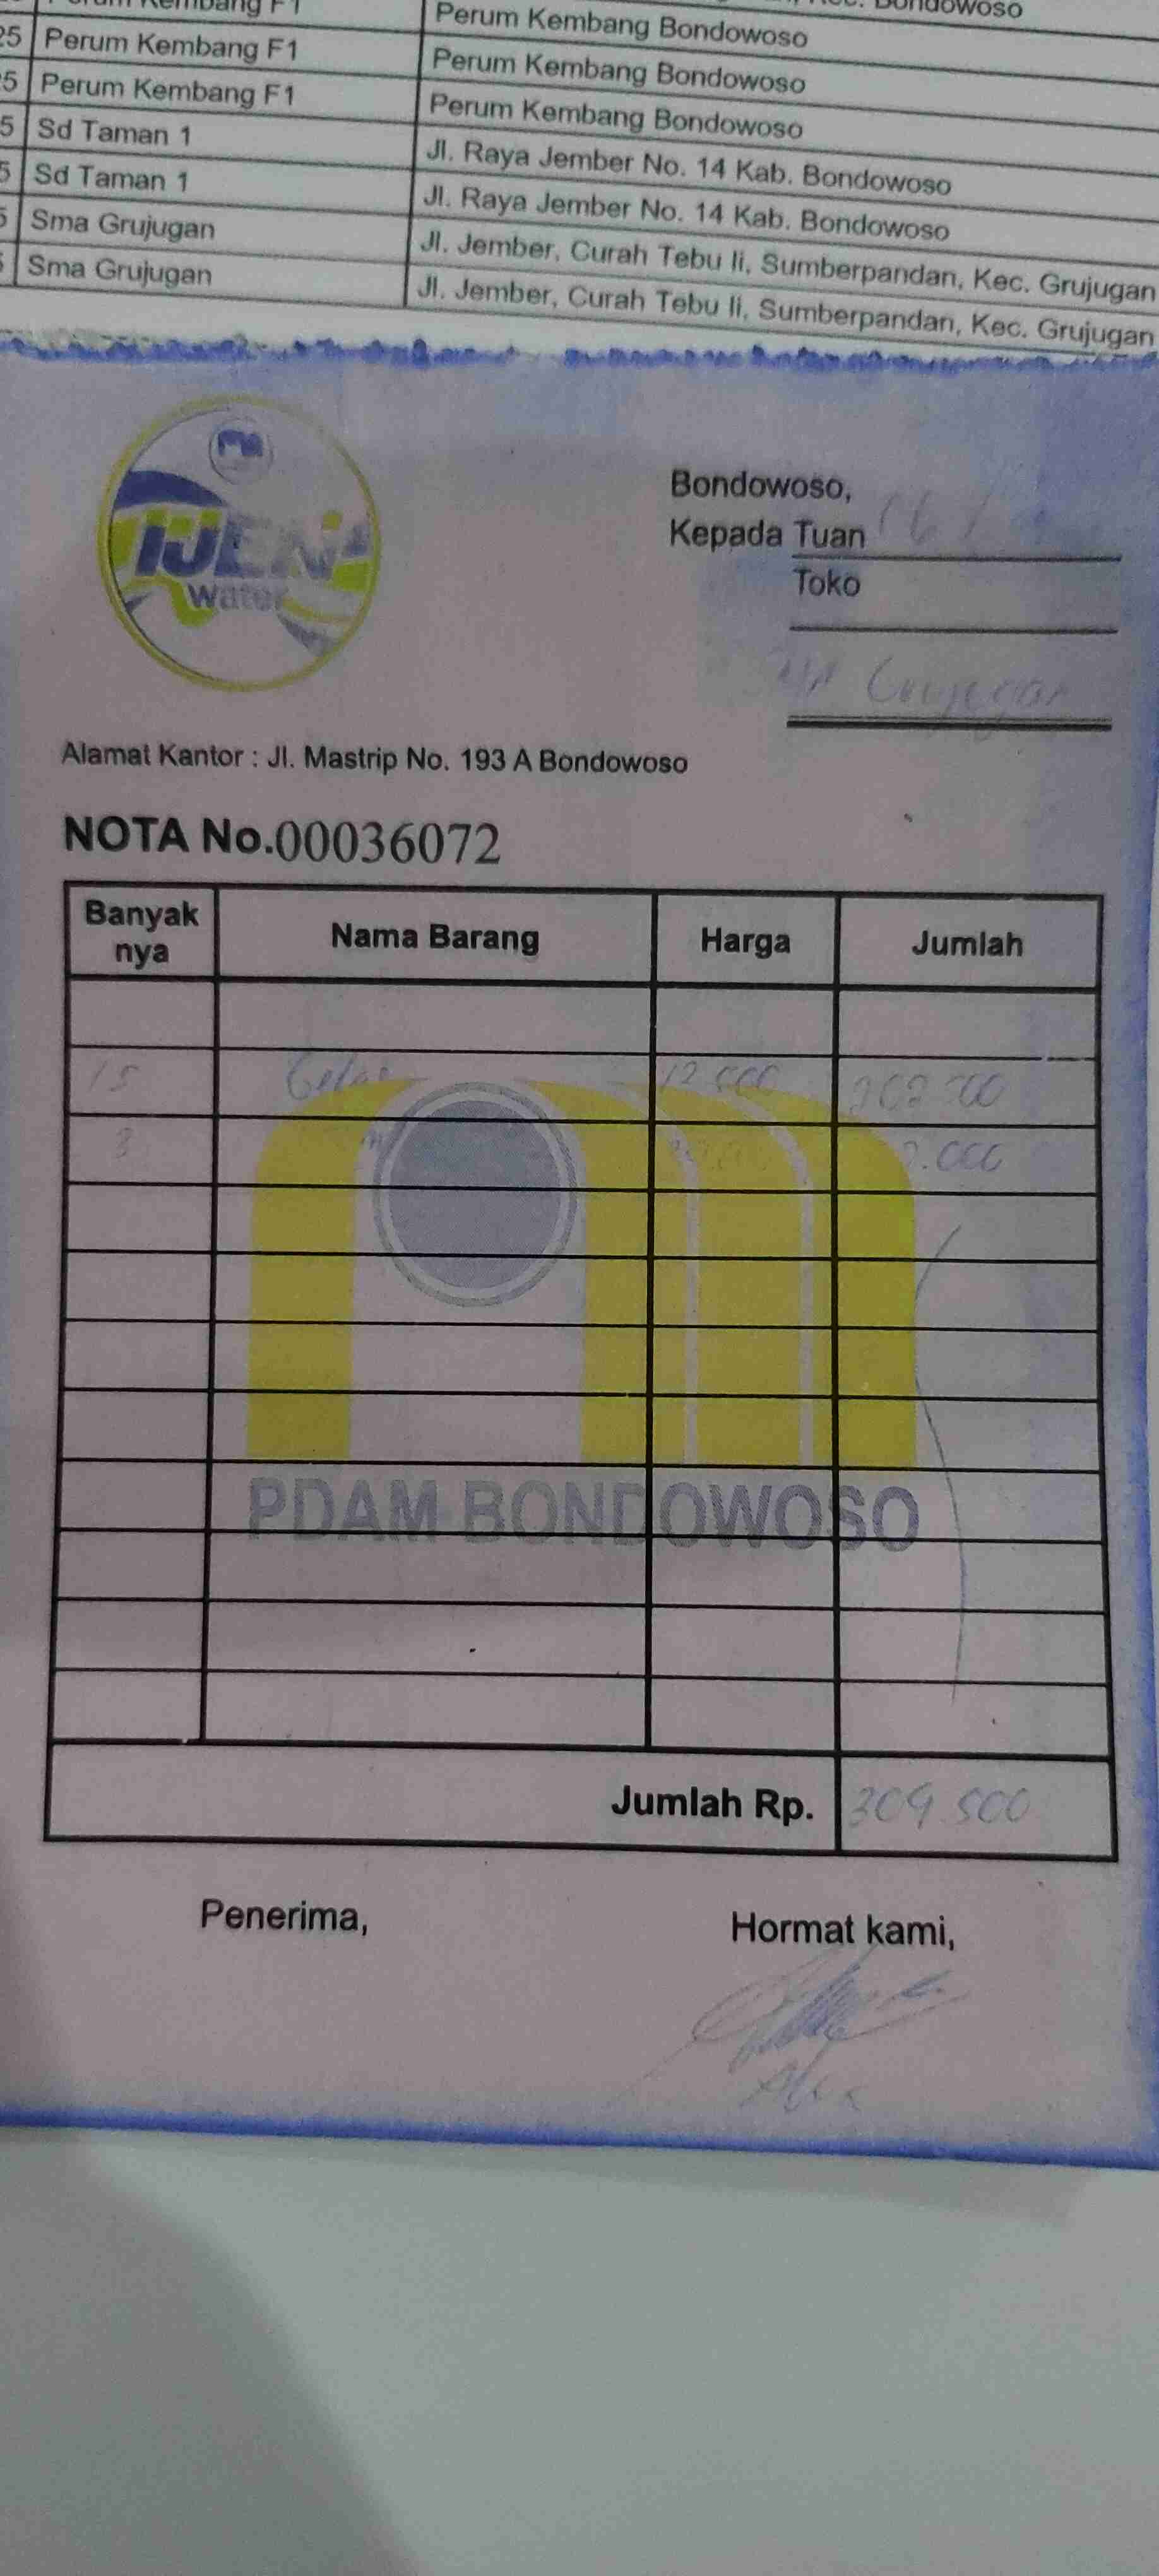 Perum Kembang F1
Perum Kembang Bondowoso
25 Perum Kembang F1 Perum Kembang Bondowoso
5 Perum Kembang F1 Perum Kembang Bondowoso
5 Sd Taman 1 Jl. Raya Jember No. 14 Kab. Bondowoso
5 Sd Taman 1 Jl. Raya Jember No. 14 Kab. Bondowoso
Sma Grujugan Jl. Jember, Curah Tebu Ii, Sumberpandan, Kec. Grujugan
Sma Grujugan Jl. Jember, Curah Tebu Ii, Sumberpandan, Kec. Grujugan
IJEN
Water
Bondowoso,
Kepada Tuan 16/
Toko
Grujugan
Alamat Kantor : Jl. Mastrip No. 193 A Bondowoso
NOTA No.00036072
Banyak nya Nama Barang Harga Jumlah
15 Gelas
3
PDAM BONDOWOSO
Jumlah Rp. 309.500
Penerima,
Hormat kami,